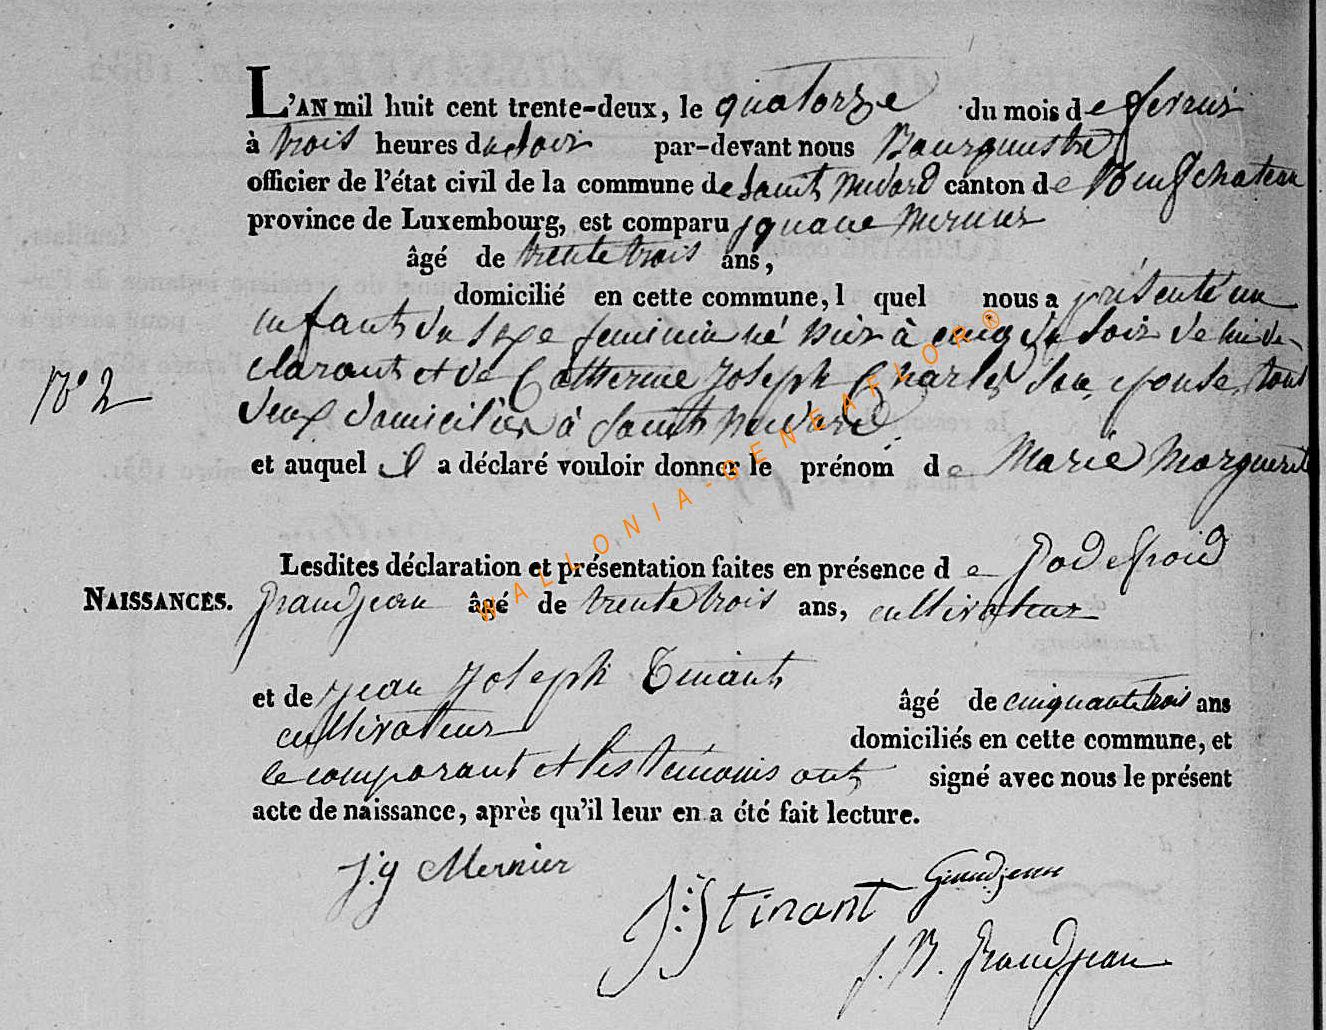 L'AN mil huit cent trente-deux, le quatorze du mois de fevrier
à trois heures du soir par-devant nous Bourguemstre
officier de l'état civil de la commune de Saint Medard canton de Neufchateau
province de Luxembourg, est comparu ignace Mernier
âgé de trente trois ans,
domicilié en cette commune, l quel nous a présenté un
enfant du sexe feminin né hier à cinq du soir de lui de-
clarant et de Catherine Joseph Charles son epouse, tous
N° 2
deux domicilies à Saint Medard
et auquel il a déclaré vouloir donner le prénom de Marie Marguerite
Lesdites déclaration et présentation faites en présence de Godefroid
NAISSANCES. Grandjean âgé de trente trois ans, cultivateur
et de jean Joseph Tinant âgé de cinquante trois ans
cultivateur domiciliés en cette commune, et
le comparant et les témoins ont signé avec nous le présent
acte de naissance, après qu'il leur en a été fait lecture.
J:g Mernier
Grandjean
J:J Tinant
J. B. Grandjean
WALLONIA-GENEAFLOR®